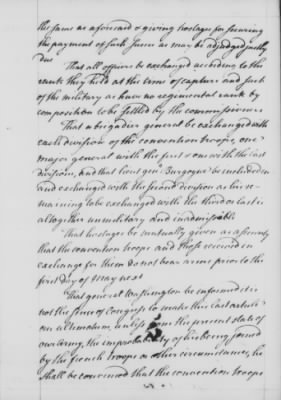 the same as aforesaid & giving hostages for securing
the payment of such sums as may be adjudged justly
due
That all officers be exchanged according to the
rank they held at the time of capture and such
of the military as have no regimental rank by
composition to be settled by the commissioners
That a brigadier general be exchanged with
each division of the convention troops, one
major general with the first & one with the last
division, and that lieut gen: Burgoyne be included in
and exchanged with the second division as his re-
maining to be exchanged with the third or last is
altogether unmilitary and inadmissible
That hostages be mutually given as a security
that the convention troops and those received in
exchange for them do not bear arms prior to the
first day of May next
That general Washington be informed it is
not the sense of Congress to make this last article
an ultimatum, unless from the present state of
our army, the improbability of his being joined
by the french troops or other circumstances, he
shall be convinced that the convention troops